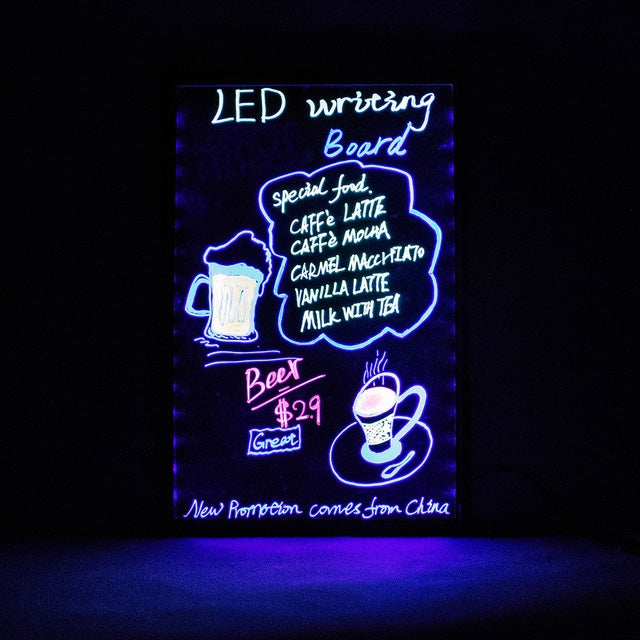 LED writing
Board
special food.
CAFFè LATTE
CAFFè MOCHA
CARMEL MACCHIATO
VANILLA LATTE
MILK WITH TEA
Beer
$29
Great
New Promotion comes from China